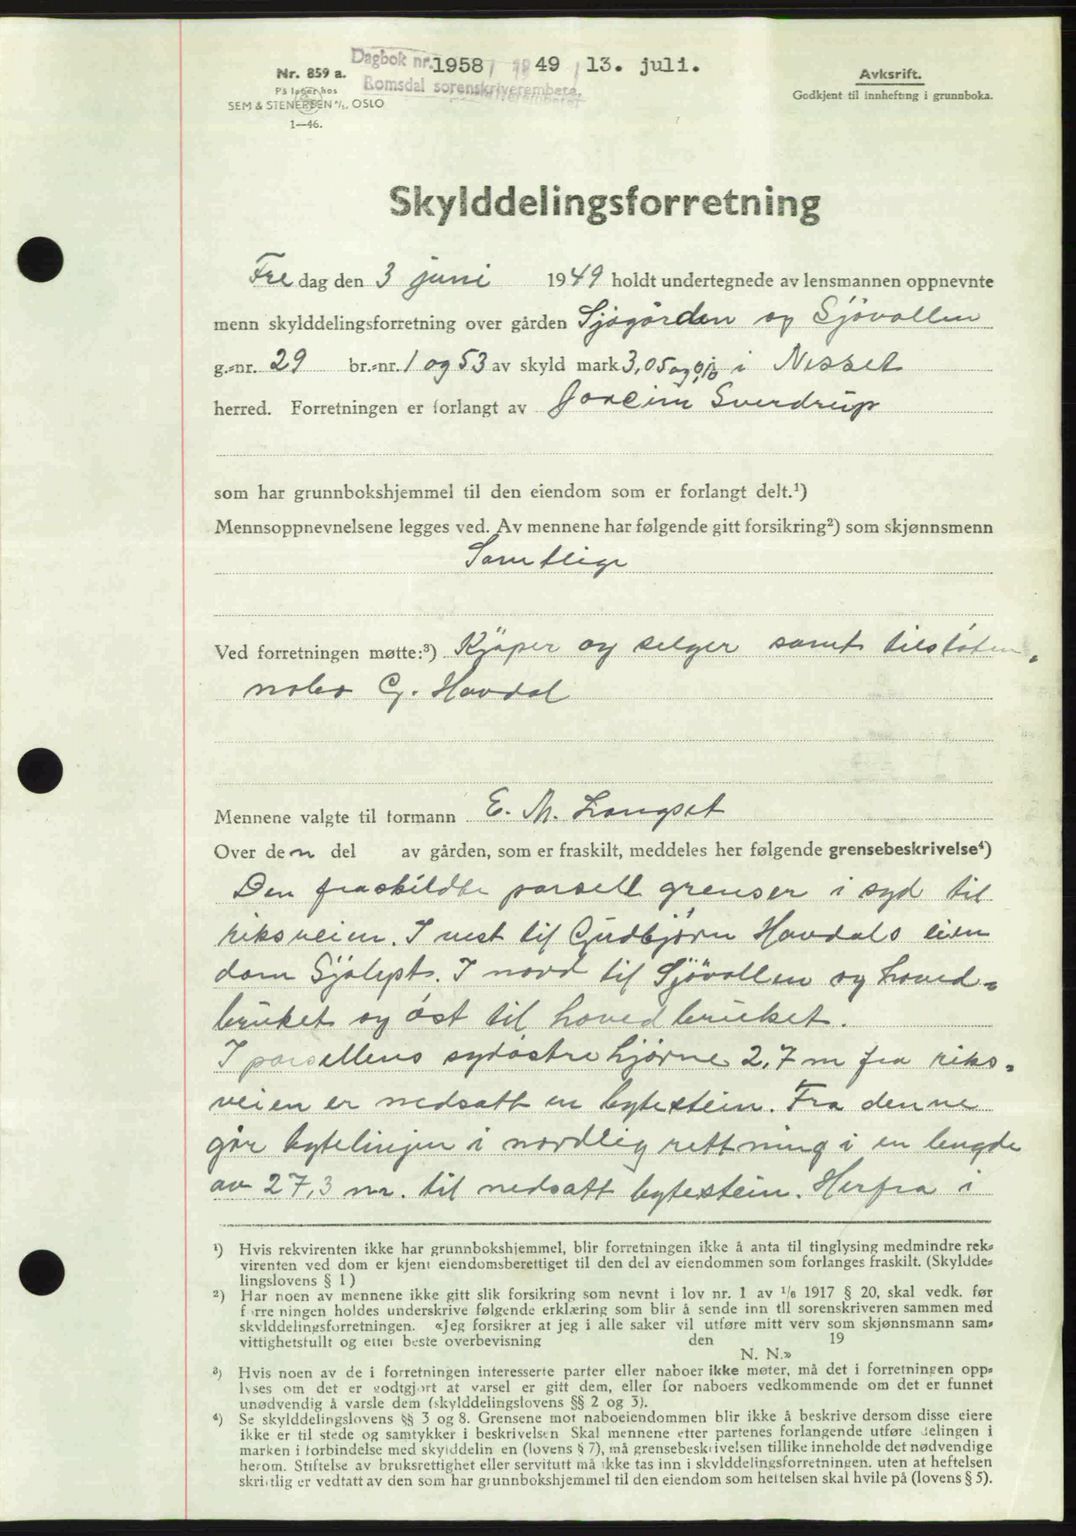 Dagbok nr. 1958 / 1949 / 13. juli.
Romsdal sorenskriverembete.
Nr. 859 a.
På lager hos
SEM & STENERSEN A/S, OSLO
1—46.
Avkskrift.
Godkjent til innhefting i grunnboka.
Skylddelingsforretning
Fredag den 3 juni 1949 holdt undertegnede av lensmannen oppnevnte
menn skylddelingsforretning over gården Sjøgården og Sjövollen
g.-nr. 29 br.-nr. 1 og 53 av skyld mark 3,05 og 0,10 i Nesset
herred. Forretningen er forlangt av Joacim Sverdrup
som har grunnbokshjemmel til den eiendom som er forlangt delt.¹)
Mennsoppnevnelsene legges ved. Av mennene har følgende gitt forsikring²) som skjønnsmenn
Samtlige
Ved forretningen møtte:³) Kjöper og selger samt tilstøten-
nabo G. Havdal
Mennene valgte til formann E. M. Langset
Over den del av gården, som er fraskilt, meddeles her følgende grensebeskrivelse⁴)
Den fraskildte parsell grenser i syd til
riksveien. I vest til Gudbjørn Havdals eien
dom . I nord til Sjövollen og hoved-
bruket og öst til hovedbruket.
I parsellens sydöstre hjørne 2,7 m fra riks-
veien er nedsatt en bytestein. Fra denne
går bytelinjen i nordlig rettning i en lengde
av 27,3 m. til nedsatt bytestein. Herfra i
¹) Hvis rekvirenten ikke har grunnbokshjemmel, blir forretningen ikke å anta til tinglysing medmindre rek-
virenten ved dom er kjent eiendomsberettiget til den del av eiendommen som forlanges fraskilt. (Skyldde-
lingslovens § 1)
²) Har noen av mennene ikke gitt slik forsikring som nevnt i lov nr. 1 av 1/6 1917 § 20, skal vedk. før
forretningen holdes underskrive følgende erklæring som blir å sende inn til sorenskriveren sammen med
skylddelingsforretningen. «Jeg forsikrer at jeg i alle saker vil utføre mitt verv som skjønnsmann sam-
vittighetsfullt og etter beste overbevisning den 19
N. N.»
³) Hvis noen av de i forretningen interesserte parter eller naboer ikke møter, må det i forretningen opp-
lyses om det er godtgjort at varsel er gitt dem, eller for naboers vedkommende om det er funnet
unødvendig å varsle dem (skylddelingslovens §§ 2 og 3).
⁴) Se skylddelingslovens §§ 3 og 8. Grensene mot naboeiendommen blir ikke å beskrive dersom disse eiere
ikke er til stede og samtykker i beskrivelsen Skal mennene etter partenes forlangende utføre delingen i
marken i forbindelse med skylddelingen (lovens § 7), må grensebeskrivelsen tillike inneholde det nødvendige
herom. Stiftelse av bruksrettighet eller servitutt må ikke tas inn i skylddelingsforretningen. uten at heftelsen
skriftlig er vedtatt av den som har grunnbokshjemmel til den eiendom som heftelsen skal hvile på (lovens § 5).